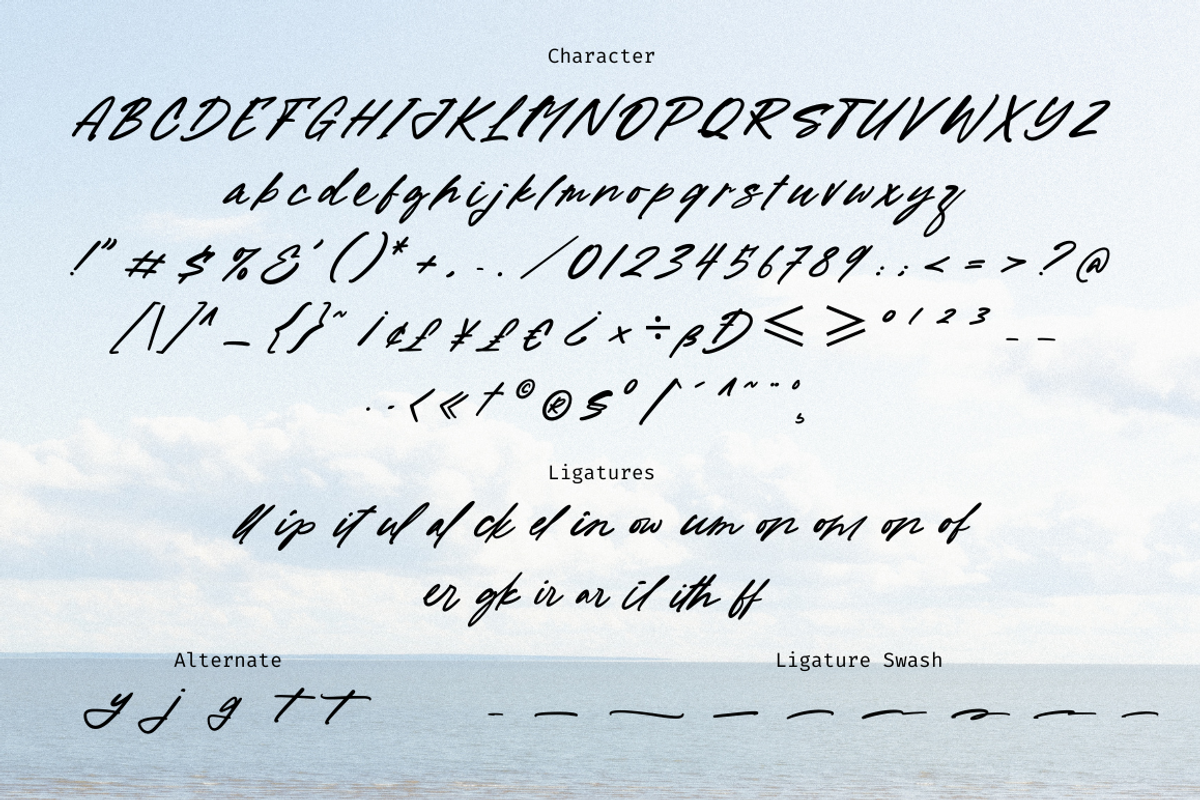 Character
A B C D E F G H I J K L M N O P Q R S T U V W X Y Z
a b c d e f g h i j k l m n o p q r s t u v w x y z
! " # $ % & ' ( ) * + , - . / 0 1 2 3 4 5 6 7 8 9 : ; < = > ? @
[ \ ] ^ _ { } ~ ¡ ¢ £ ¥ £ € ¿ × ÷ ß Đ ≤ ≥ ⁰ ¹ ² ³ _ _
· - ‹ « † © ® S ° / ` ´ ^ ~ ¨ ° ¸
Ligatures
ll ip it ul al ck el in ow um on om on of
er gk ir ar il ith ff
Alternate
y j g t t
Ligature Swash